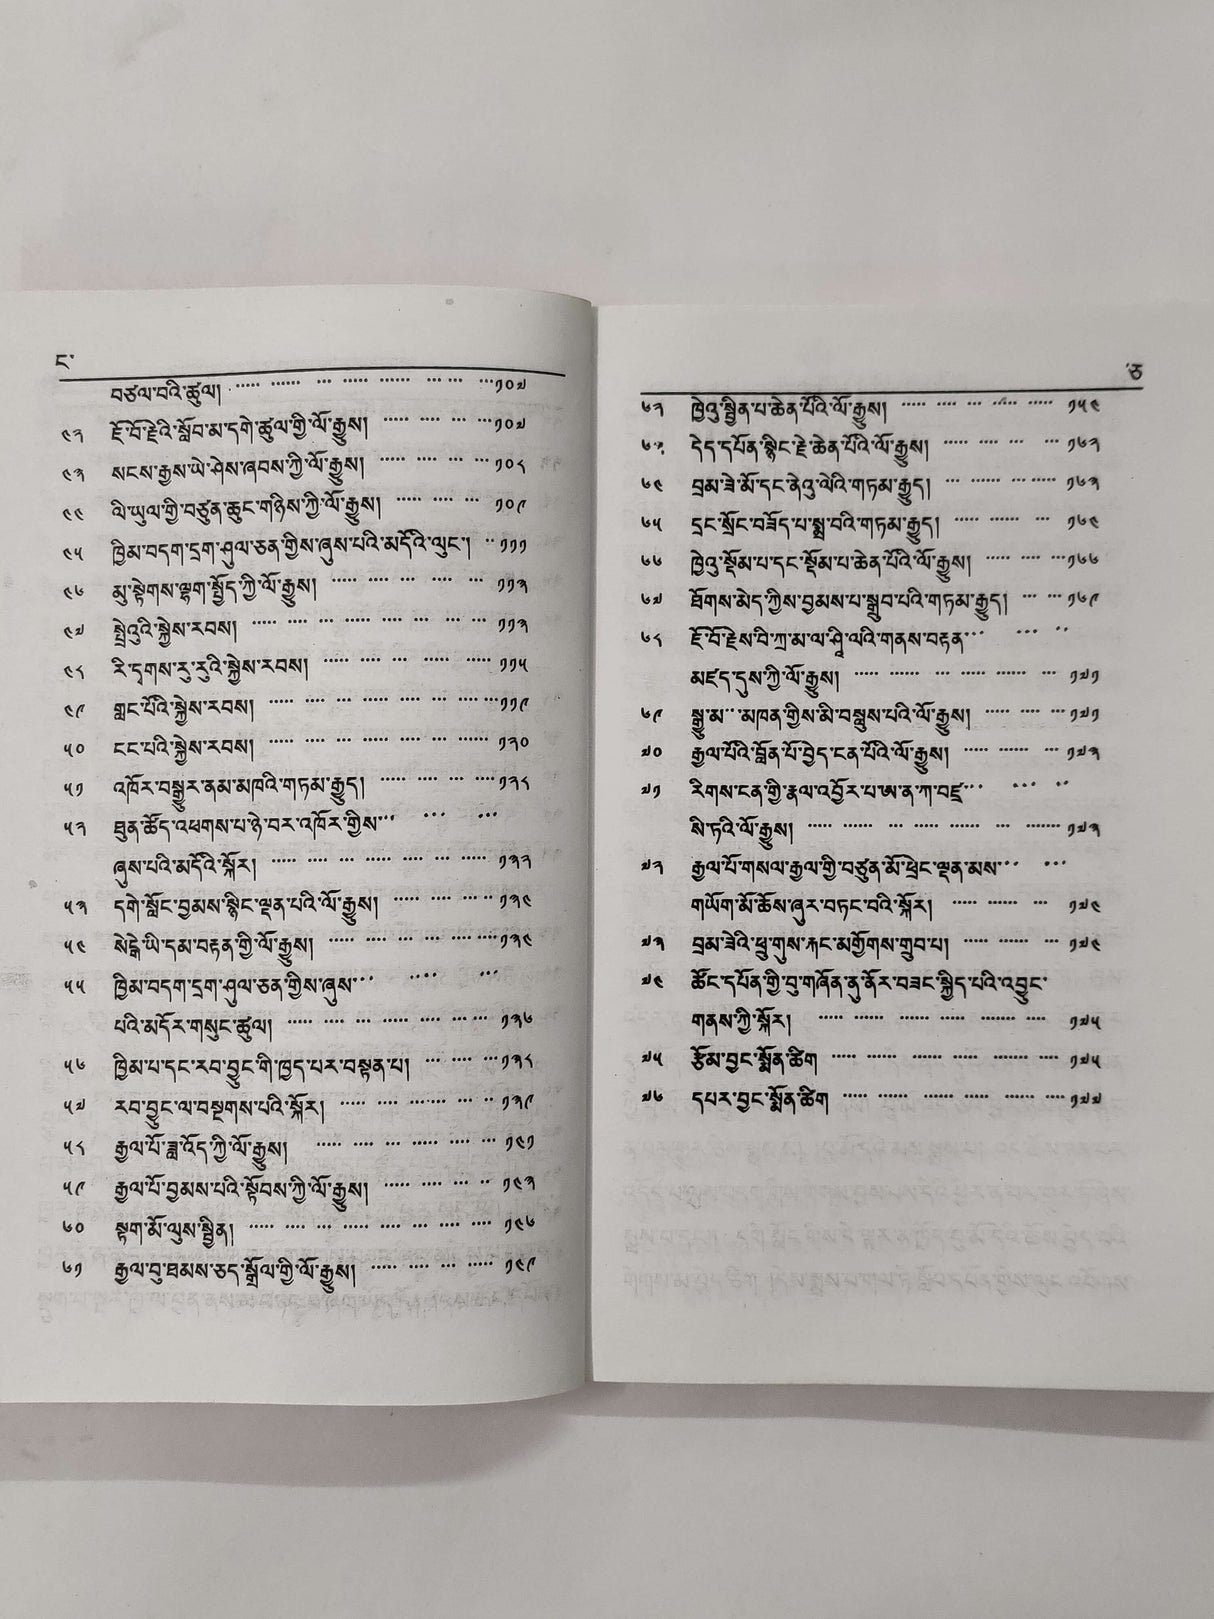 ང་
བཙལ་བའི་ཚུལ། ༡༠༧
༤༢ ཇོ་བོ་རྗེའི་སློབ་མ་དགེ་ཚུལ་གྱི་ལོ་རྒྱུས། ༡༠༧
༤༣ སངས་རྒྱས་ཡེ་ཤེས་ཞབས་ཀྱི་ལོ་རྒྱུས། ༡༠༨
༤༤ ལི་ཡུལ་གྱི་བཙུན་ཆུང་གཉིས་ཀྱི་ལོ་རྒྱུས། ༡༠༩
༤༥ ཁྱིམ་བདག་དྲག་ཤུལ་ཅན་གྱིས་ཞུས་པའི་མདོའི་ལུང་། ༡༡༡
༤༦ མུ་སྟེགས་ལྷག་སྤྱོད་ཀྱི་ལོ་རྒྱུས། ༡༡༣
༤༧ སྤྲེའུའི་སྐྱེས་རབས། ༡༡༣
༤༨ རི་དྭགས་རུ་རུའི་སྐྱེས་རབས། ༡༡༥
༤༩ གླང་པོའི་སྐྱེས་རབས། ༡༡༩
༥༠ ངང་པའི་སྐྱེས་རབས། ༡༢༠
༥༡ འཁོར་བསྒྱུར་ནམ་མཁའི་གཏམ་རྒྱུད། ༡༢༨
༥༢ ཐུན་ཚོད་འཕགས་པ་ཉེ་བར་འཁོར་གྱིས་
ཞུས་པའི་མདོའི་སྐོར། ༡༣༢
༥༣ དགེ་སློང་བྱམས་སྙིང་ལྡན་པའི་ལོ་རྒྱུས། ༡༣༤
༥༤ སེངྒེ་ཡི་དམ་བརྟན་གྱི་ལོ་རྒྱུས། ༡༣༤
༥༥ ཁྱིམ་བདག་དྲག་ཤུལ་ཅན་གྱིས་ཞུས་
པའི་མདོར་གསུང་ཚུལ། ༡༣༦
༥༦ ཁྱིམ་པ་དང་རབ་བྱུང་གི་ཁྱད་པར་བསྟན་པ། ༡༣༨
༥༧ རབ་བྱུང་ལ་བསྔགས་པའི་སྐོར། ༡༣༩
༥༨ རྒྱལ་པོ་ཟླ་འོད་ཀྱི་ལོ་རྒྱུས། ༡༤༡
༥༩ རྒྱལ་པོ་བྱམས་པའི་སྟོབས་ཀྱི་ལོ་རྒྱུས། ༡༤༣
༦༠ སྟག་མོ་ལུས་སྦྱིན། ༡༤༦
༦༡ རྒྱལ་བུ་ཐམས་ཅད་སྒྲོལ་གྱི་ལོ་རྒྱུས། ༡༤༩
ཅ
༦༢ ཁྱེའུ་སྦྱིན་པ་ཆེན་པོའི་ལོ་རྒྱུས། ༡༥༤
༦༣ དེད་དཔོན་སྙིང་རྗེ་ཆེན་པོའི་ལོ་རྒྱུས། ༡༦༢
༦༤ བྲམ་ཟེ་མོ་དང་ནེའུ་ལེའི་གཏམ་རྒྱུད། ༡༦༣
༦༥ དྲང་སྲོང་བཟོད་པ་སྨྲ་བའི་གཏམ་རྒྱུད། ༡༦༤
༦༦ ཁྱེའུ་སྡོམ་པ་དང་སྡོམ་པ་ཆེན་པོའི་ལོ་རྒྱུས། ༡༦༦
༦༧ ཐོགས་མེད་ཀྱིས་བྱམས་པ་སྒྲུབ་པའི་གཏམ་རྒྱུད། ༡༦༩
༦༨ ཇོ་བོ་རྗེས་བི་ཀྲ་མ་ལ་ཤཱི་ལའི་གནས་བརྟན་
མཛད་དུས་ཀྱི་ལོ་རྒྱུས། ༡༧༡
༦༩ སྒྱུ་མ་མཁན་གྱིས་མི་བསླུས་པའི་ལོ་རྒྱུས། ༡༧༡
༧༠ རྒྱལ་པོའི་བློན་པོ་བྱེད་ངན་པོའི་ལོ་རྒྱུས། ༡༧༢
༧༡ རིགས་ངན་གྱི་རྣལ་འབྱོར་པ་ཨ་ན་ཀ་བཛྲ་
སི་ཏའི་ལོ་རྒྱུས། ༡༧༣
༧༢ རྒྱལ་པོ་གསལ་རྒྱལ་གྱི་བཙུན་མོ་ཕྲེང་ལྡན་མས་
གཡོག་མོ་ཆོས་ཞུར་བཏང་བའི་སྐོར། ༡༧༤
༧༣ བྲམ་ཟེའི་ཕྲུ་གུས་རྐང་མགྱོགས་གྲུབ་པ། ༡༧༤
༧༤ ཚོང་དཔོན་གྱི་བུ་གཞོན་ནུ་ནོར་བཟང་སྐྱིད་པའི་འབྱུང་
གནས་ཀྱི་སྐོར། ༡༧༥
༧༥ རྩོམ་བྱང་སྨོན་ཚིག ༡༧༥
༧༦ དཔར་བྱང་སྨོན་ཚིག ༡༧༧